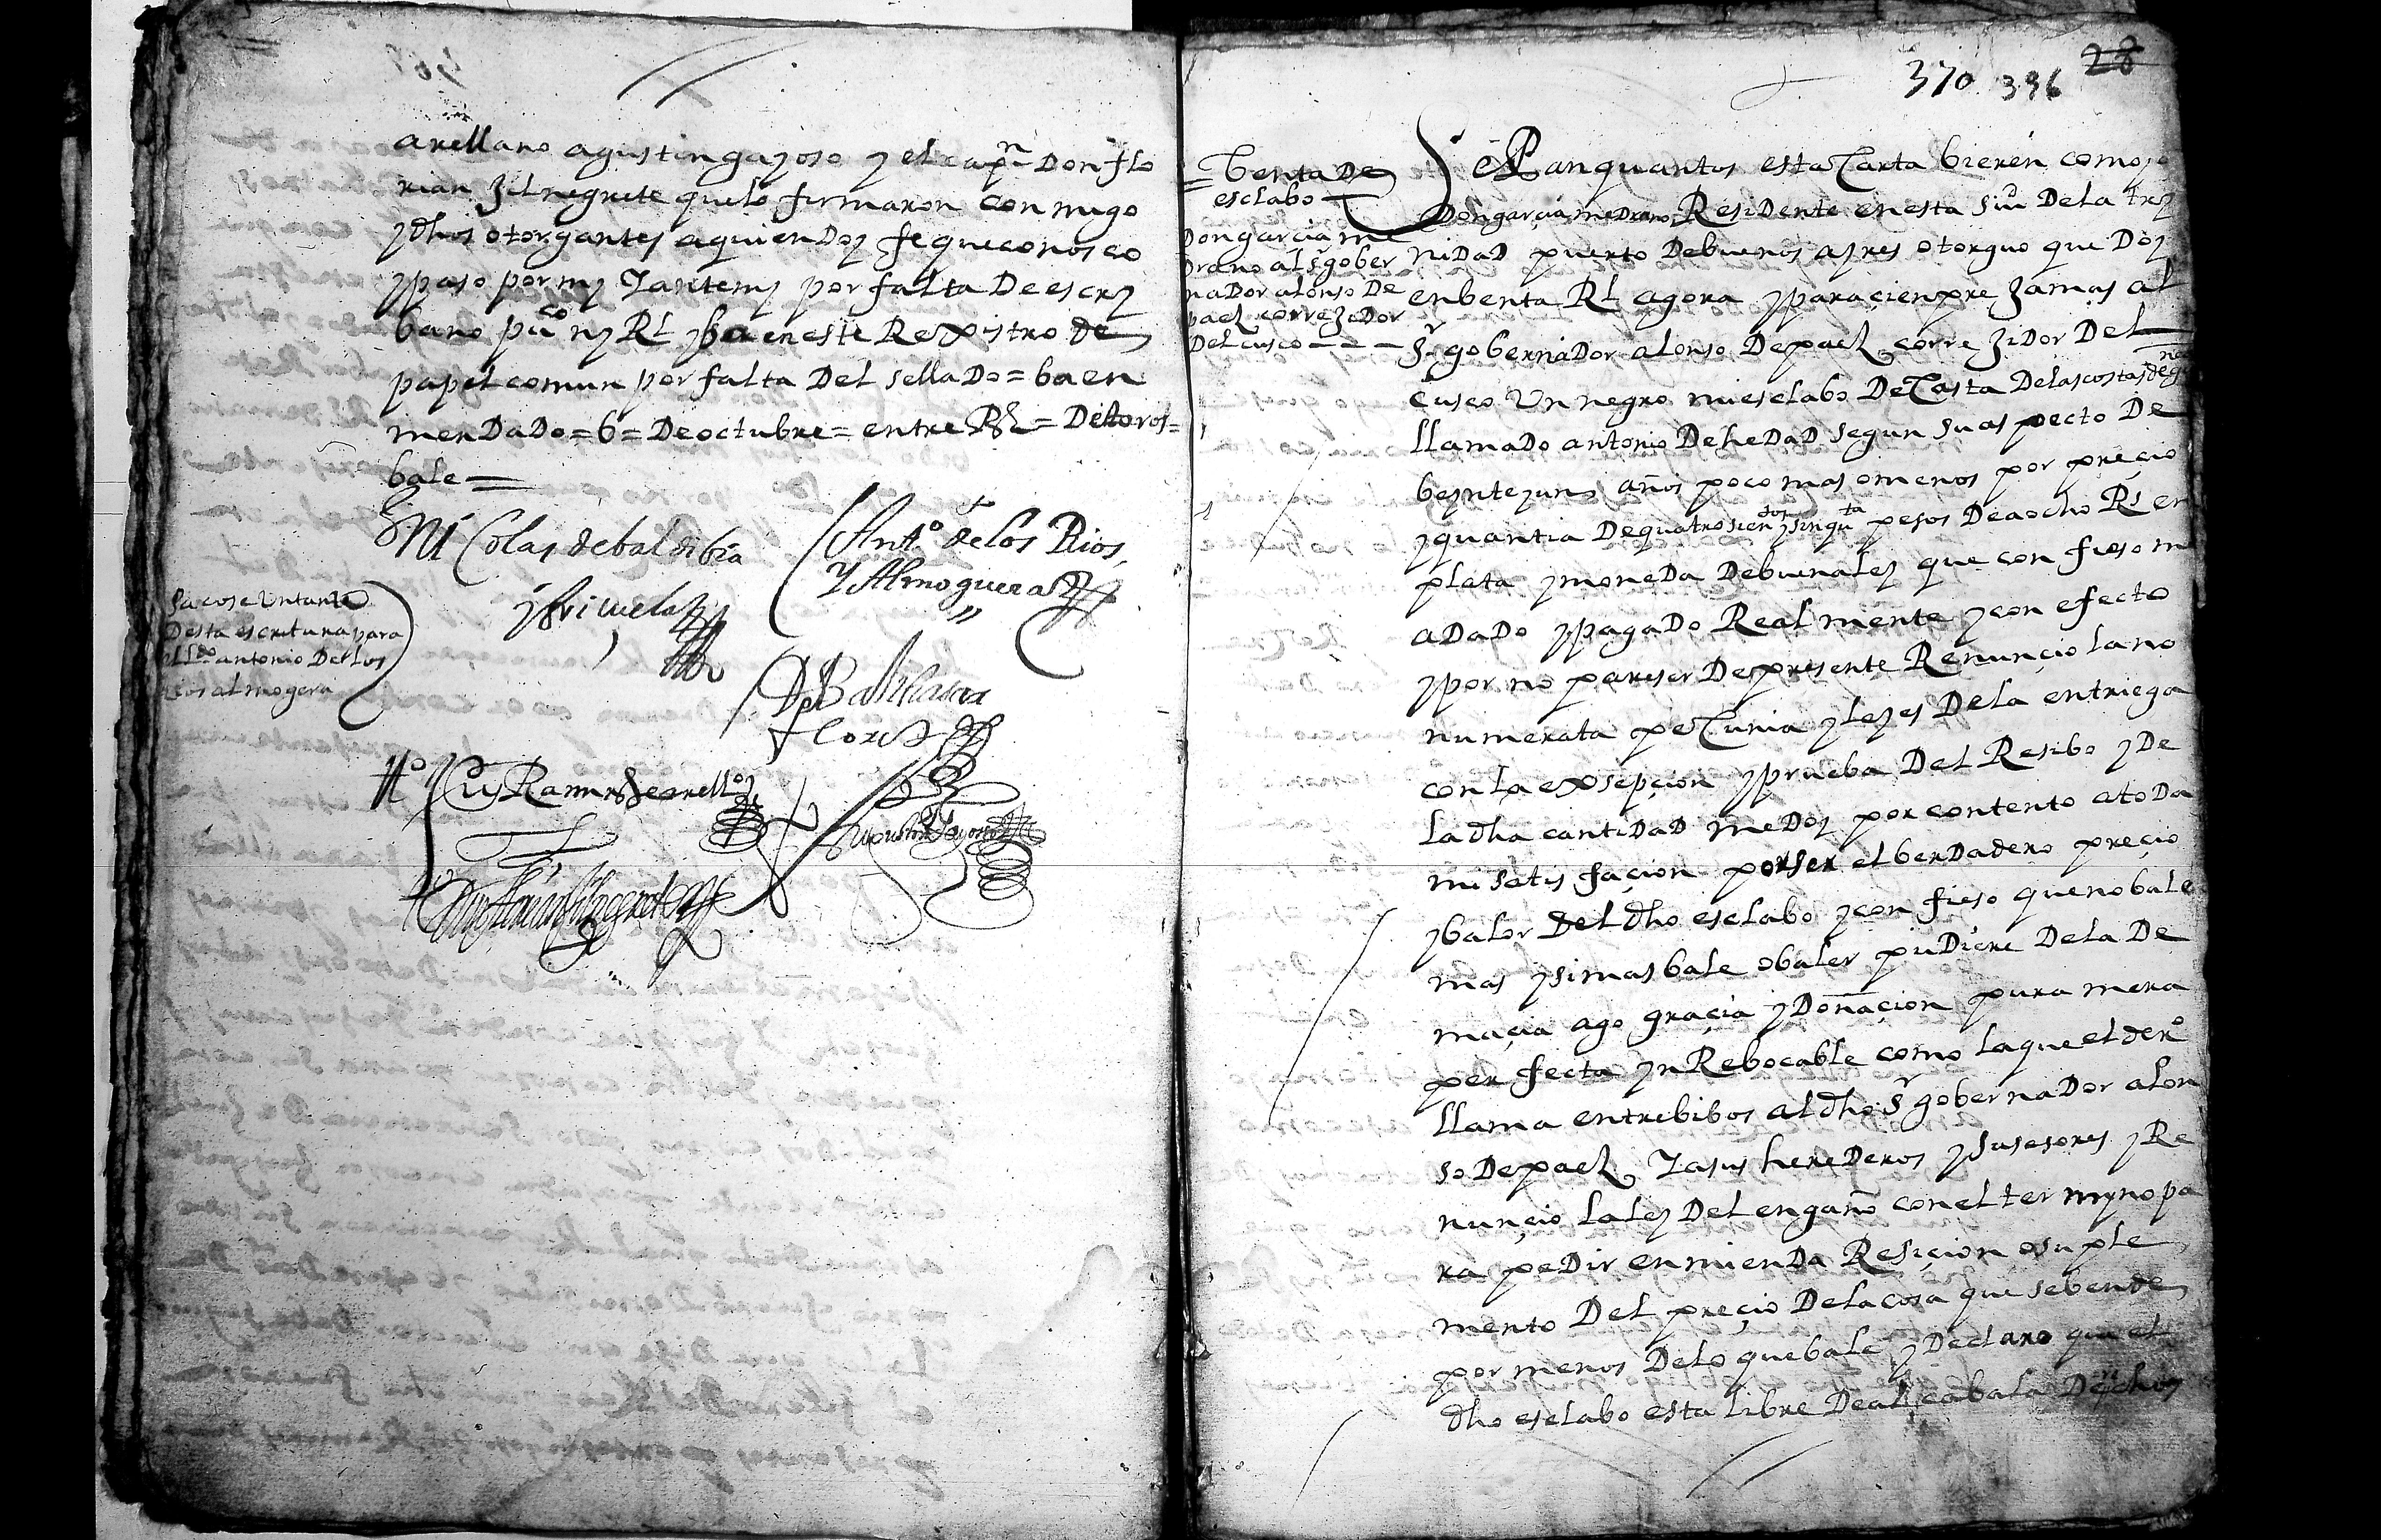 arellano agustin gayoso y el capn Don flo
rian Jil negrete que lo firmaron con migo
y dhos otorgantes a quien Doy fe que conosco
y paso por my Y ante my por falta De escry
bano puco ny Rl y ba en este Rexistro de
papel comun por falta Del sellaDo = ba en
menDaDo = 6 = De octubre = entre Rs =
bale =
Niculas de baldibia
y brisuela
Anto de Los Rios
Y Almoguera
Sacose Un tanto
Desta escritura para
el lldo antonio De los
rios almogera
D Balthasar
florez
to Luis Ramirez de arellano
Agustin Gayoso
to Don florian Gil negrete
370 396 28
benta De
esclabo
Don garcia me
drano al sr gober
naDor alonso De
paez correjiDor
Del cusco - - -
SePan quantos esta Carta bieren como yo
Don garcia meDrano ResiDente en esta siud De la try
niDaD puerto De buenos ayres otorguo que Doy
en benta Rl agora y para cienpre Jamas al
sr gobernaDor alonso De paez correJiDor Del
cusco Un negro mi esclabo De Casta De las costas de guinea
llamaDo antonio De heDaD segun su aspecto De
beynte y un años poco mas o menos por preçio
y quantia De quatrosientos y sinquta pesos De a ocho Rs en
plata y moneDa De buena ley que confieso m
a DaDo y pagaDo Real mente y con efecto
y por no pareser De presente Renunçio la no
numerata peCunia y leyes De la entriega
con la exsepçion y prueba Del Resibo y De
la dha cantiDaD me Doy por contento a toDa
mi satisfaçion por ser el berDaDero preçio
y balor Del dho esclabo y confieso que no bale
mas y si mas bale o baler puDiere De la De
maçia ago graçia y Donaçion pura mera
perfecta ynRebocable como la que el dero
llama entre bibos al dho sr gobernaDor alon
so De paez Y a sus hereDeros y susesores y Re
nunçio la ley Del engaño con el termyno pa
ra peDir enmienDa Resiçion o suple
mento Del preçio De la cosa que se bende
por menos De lo que bale y Declaro que el
dho esclabo esta libre De alcabala Derechos